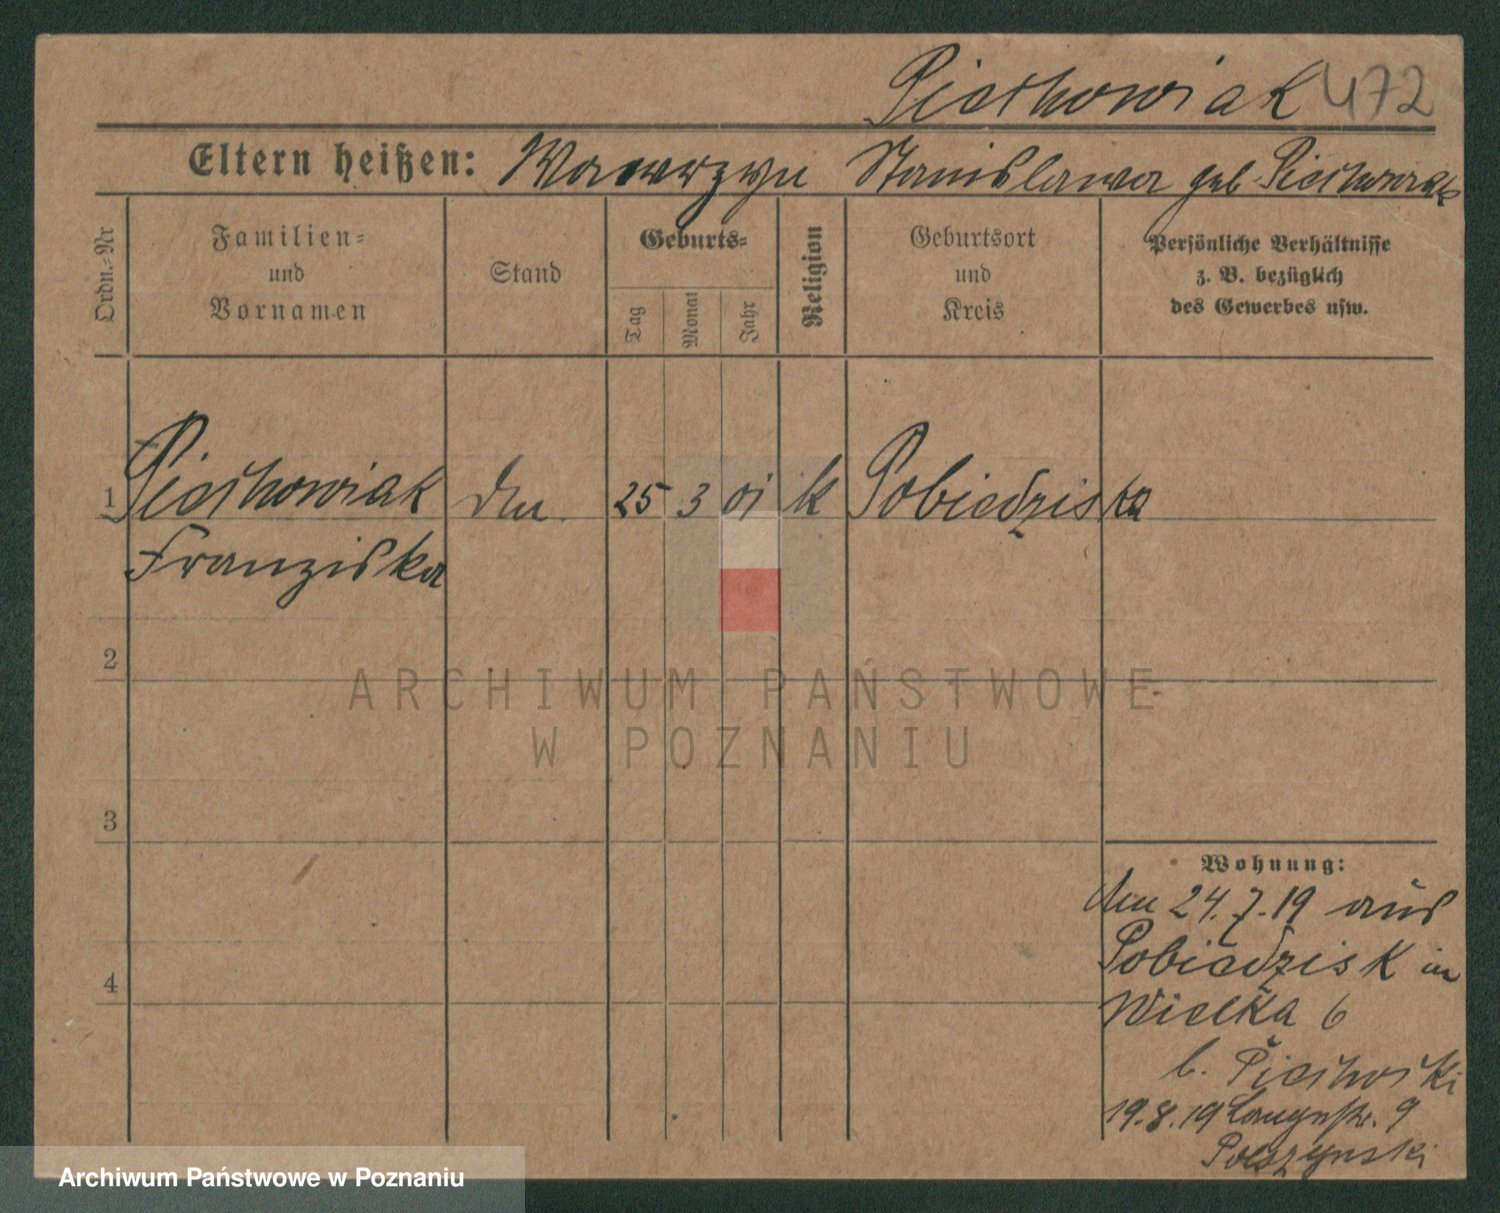 Piechowiak 472
Eltern heißen: Wawrzyn Stanislawa geb. Piechowiak
Ordn.-Nr
Familien-
und
Vornamen
Stand
Geburts-
Tag
Monat
Jahr
Religion
Geburtsort
und
Kreis
Persönliche Verhältnisse
z. B. bezüglich
des Gewerbes usw.
1 Piechowiak 25 3 01 k Pobiedziska
Franziska
2
ARCHIWUM PAŃSTWOWE
W POZNANIU
3
4
Wohnung:
24.7.19 aus
Pobiedzisk in
Wielka 6
b.
19.8.19 Langestr. 9
Archiwum Państwowe w Poznaniu